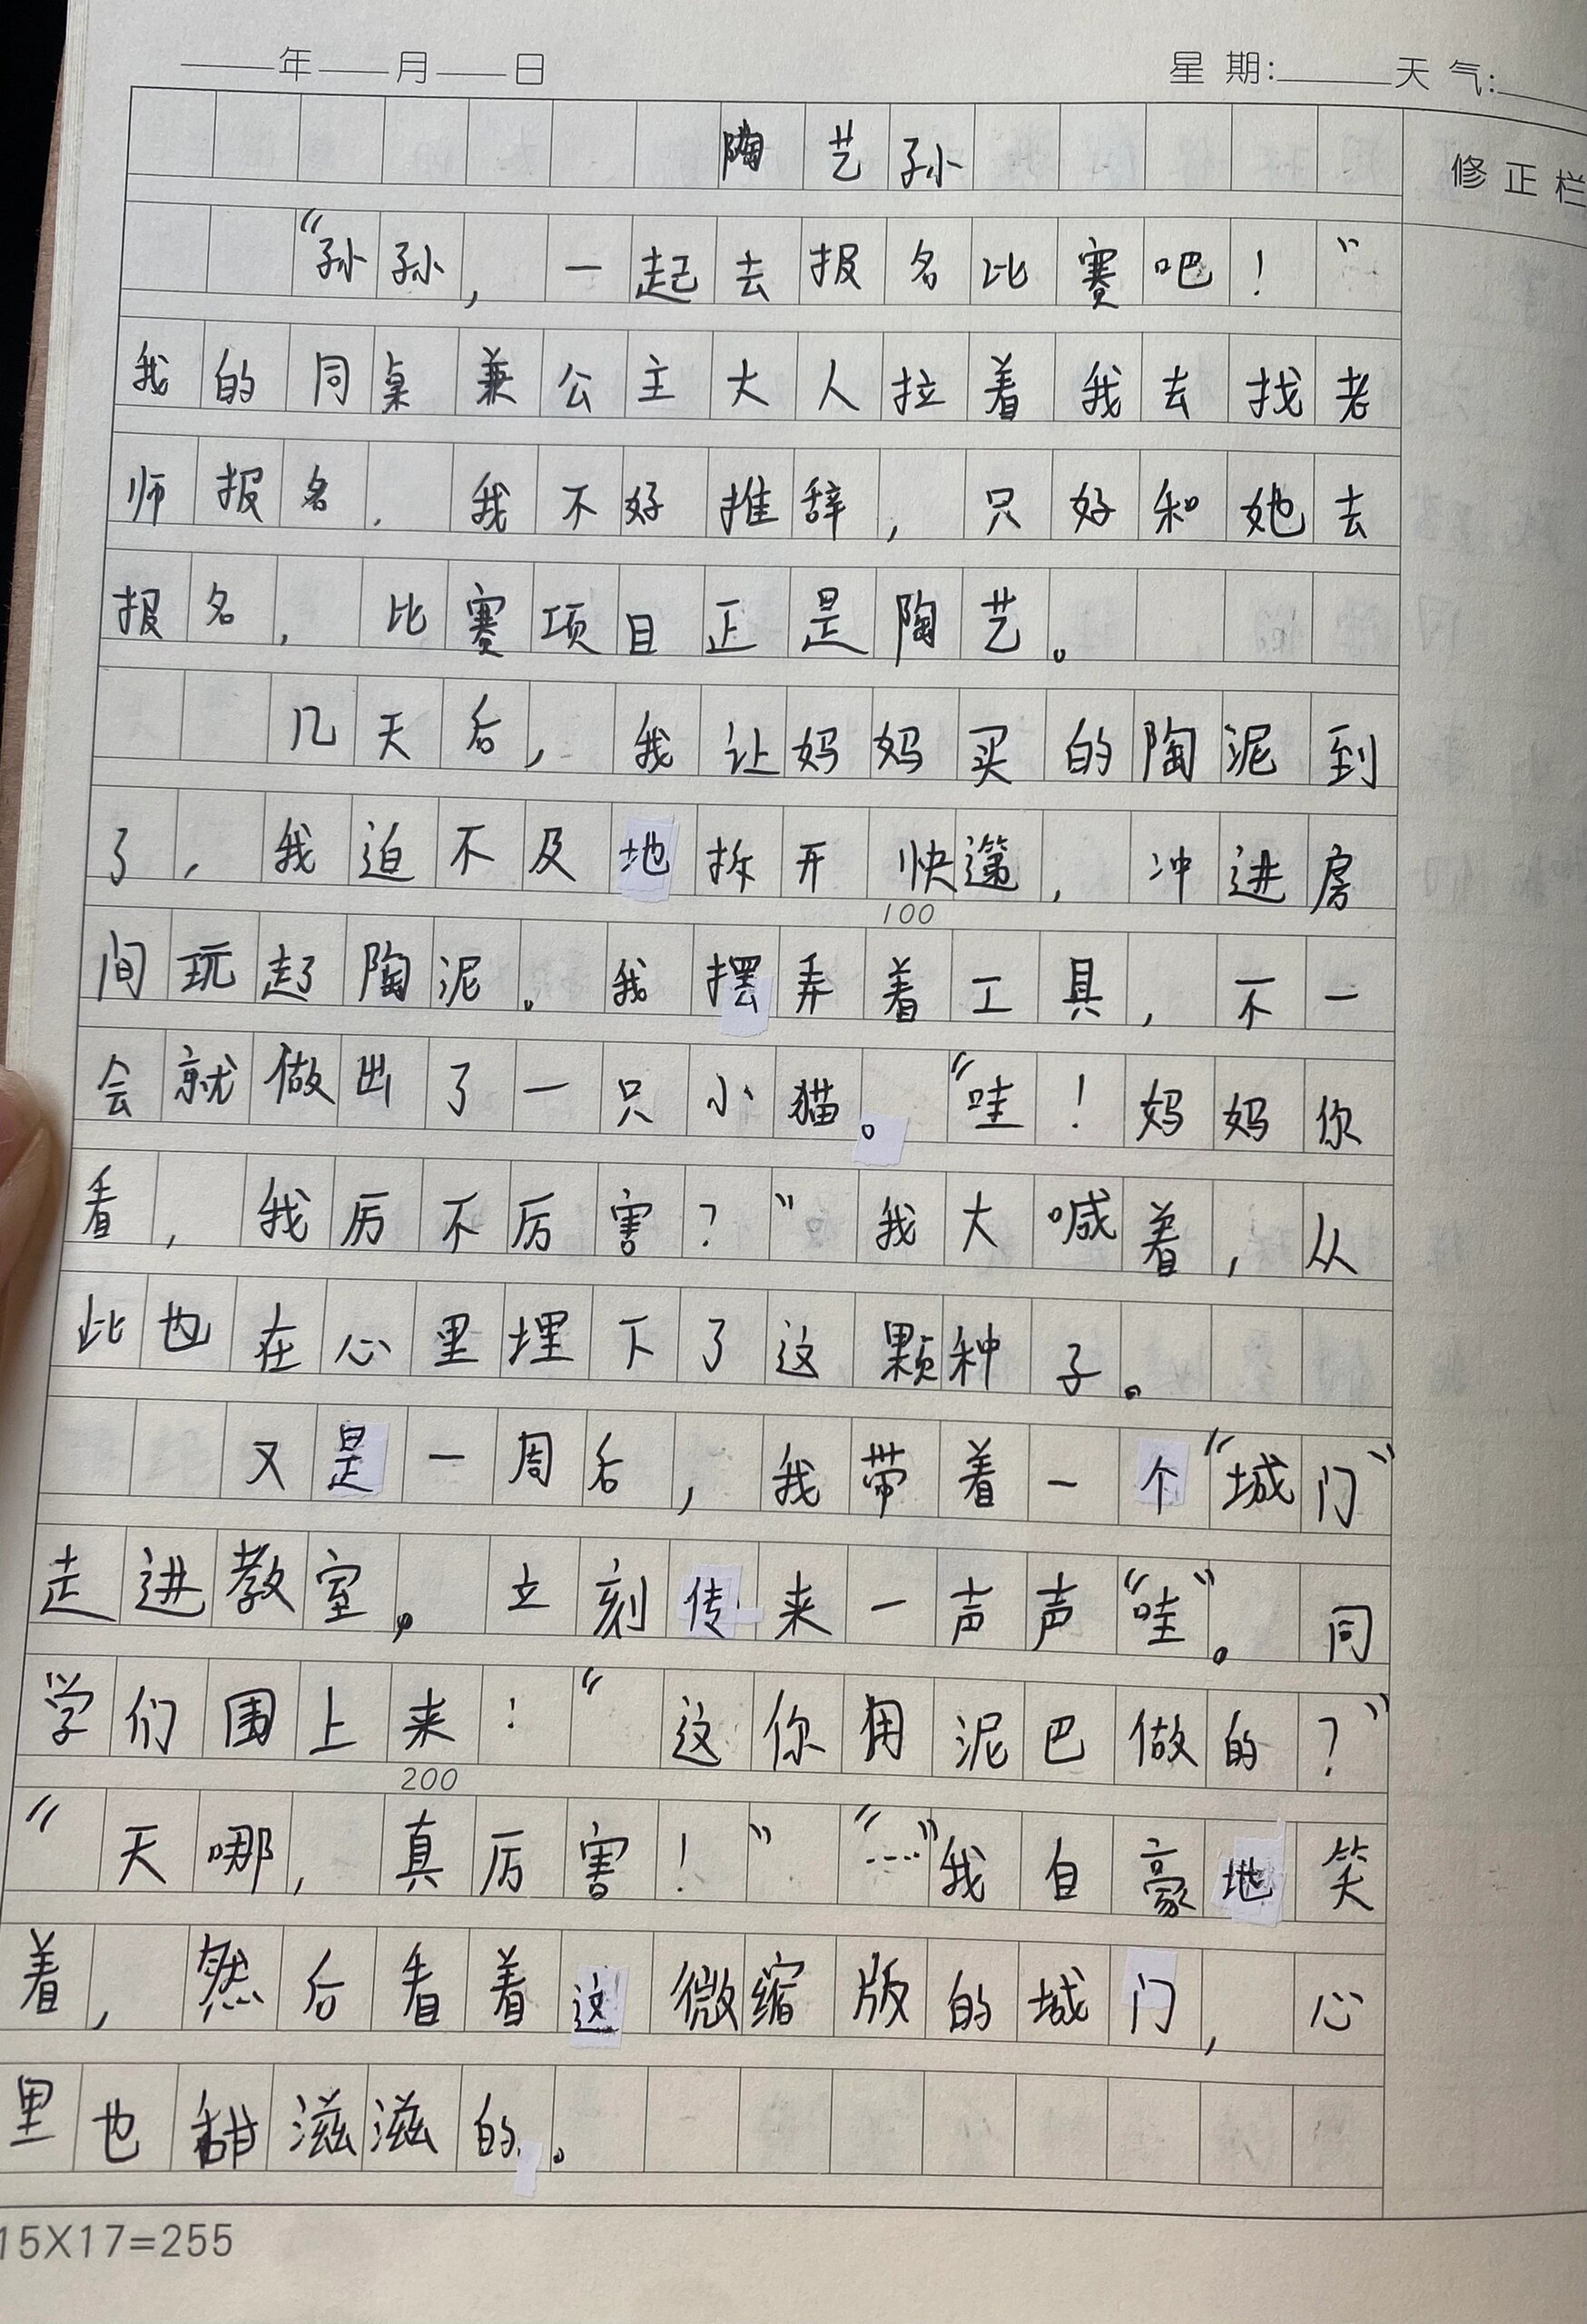 ____年____月____日 星期:____天气:____
陶艺孙
修正栏
“孙孙，一起去报名比赛吧！”
我的同桌兼公主大人拉着我去找老
师报名，我不好推辞，只好和她去
报名，比赛项目正是陶艺。
几天后，我让妈妈买的陶泥到
了，我迫不及地拆开快递，冲进房
100
间玩起了陶泥。我摆弄着工具，不一
会就做出了一只小猫。“哇！妈妈你
看，我厉不厉害？”我大喊着，从
此也在心里埋下了这颗种子。
又是一周后，我带着一个“城门”
走进教室。立刻传来一声声“哇”。同
学们围上来：“这你用泥巴做的？”
200
“天哪，真厉害！”“……”我自豪地笑
着，然后看着这微缩版的城门，心
里也甜滋滋的。
15X17=255